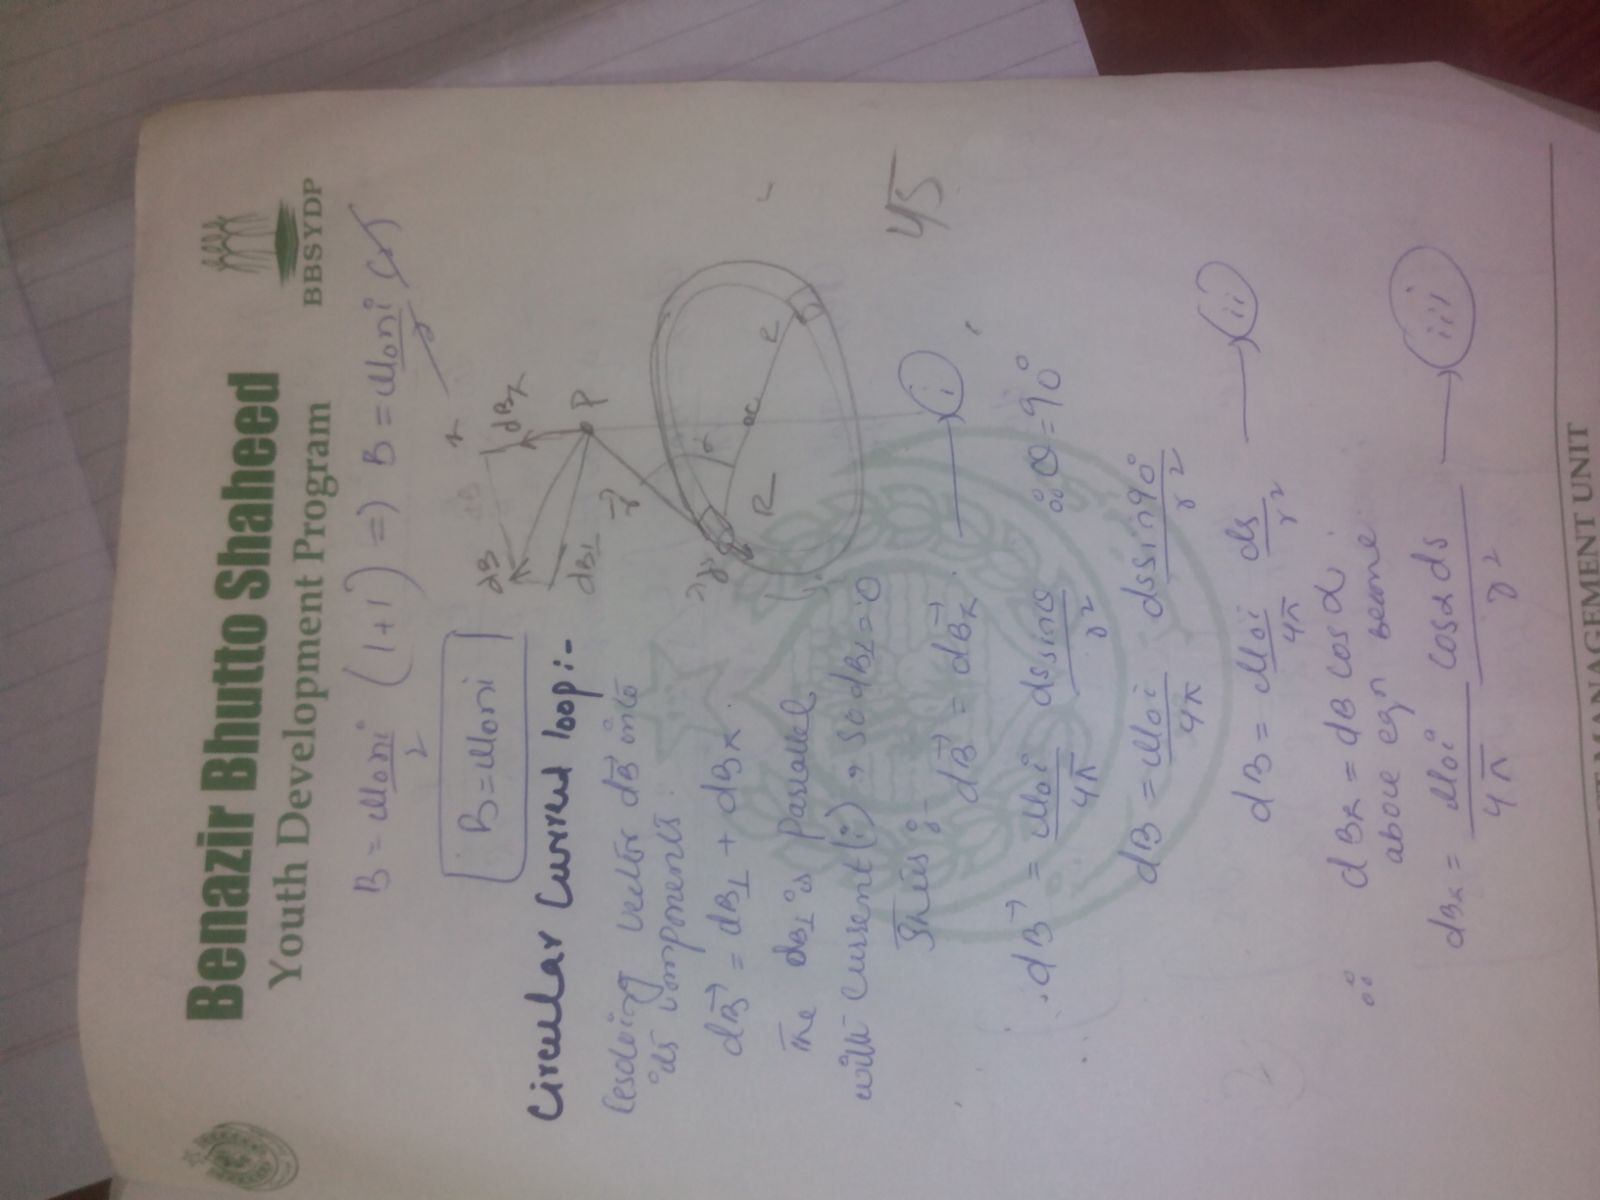 Benazir Bhutto Shaheed
Youth Development Program
BBSYDP
B = μ₀ni/2 (1+1) ⇒ B = μ₀ni/2 (2)
B = μ₀ni
Circular Current loop:-
Resolving vector dB⃗ into
its components.
dB⃗ = dB⊥ + dBx.
The dB⊥ is Parallel
with current (i), so dB⊥ = 0
Thus :-
dB⃗ = dB⃗x. → i
dB⃗ = μ₀i/4π dssinθ/r² ∴ θ = 90°
dB = μ₀i/4π dssin90°/r²
dB = μ₀i/4π ds/r² → ii
∴ dBx = dB cosα.
above eqn become
dBx = μ₀i/4π cosα ds/r² → iii
x
dB
dBx
dB⊥
P
r⃗
α
R
R
45
MANAGEMENT UNIT